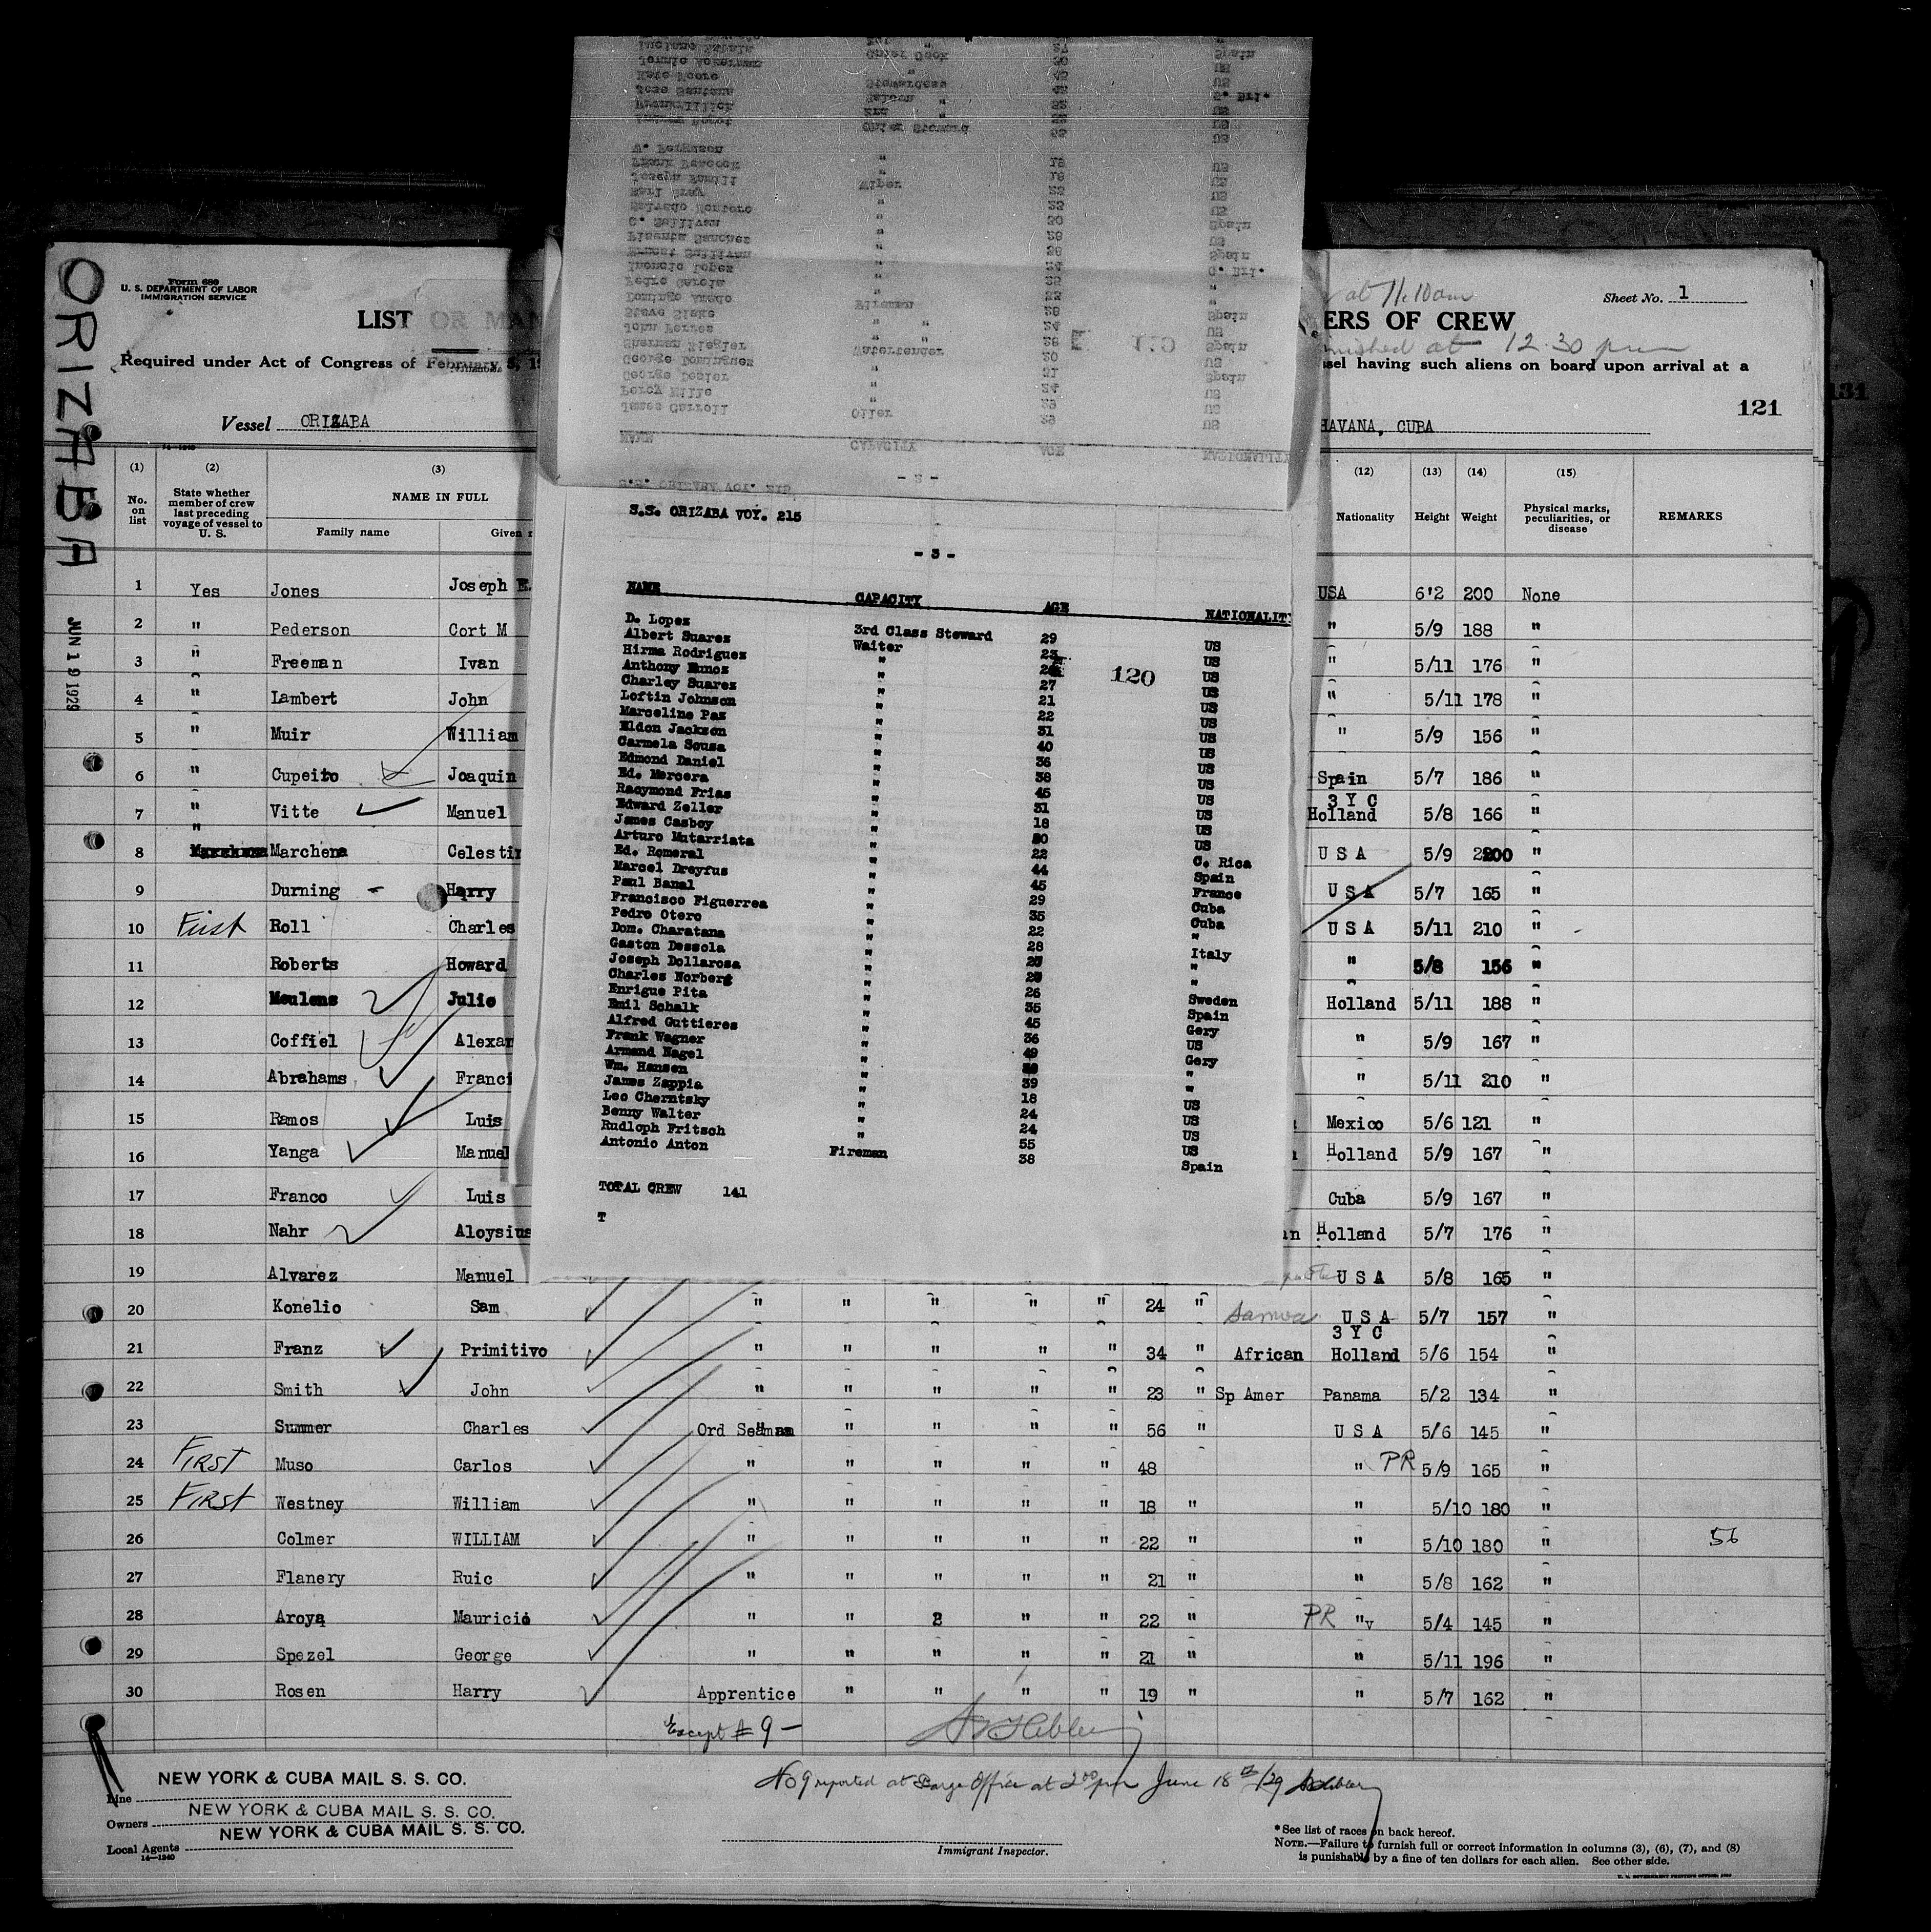 ORIZABA
JUN 19 1929
Form 680
U. S. DEPARTMENT OF LABOR
IMMIGRATION SERVICE
LIST OR MAN
ERS OF CREW
at 11.10 am
Sheet No. 1
Required under Act of Congress of February 5, 19
at 12.30 pm
sel having such aliens on board upon arrival at a
121
131
Vessel ORIZABA
HAVANA, CUBA
14-1940
(1) No. on list
(2) State whether member of crew last preceding voyage of vessel to U. S.
(3) NAME IN FULL
Family name
Given
(12) Nationality
(13) Height
(14) Weight
(15) Physical marks, peculiarities, or disease
REMARKS
1 Yes Jones Joseph E. USA 6'2 200 None
2 " Pederson Cort M " 5/9 188 "
3 " Freeman Ivan " 5/11 176 "
4 " Lambert John " 5/11 178 "
5 " Muir William " 5/9 156 "
6 " Cupeiro Joaquin Spain 5/7 186 "
7 " Vitte Manuel 3 Y C Holland 5/8 166 "
8 " Marchena Celestin U S A 5/9 200 "
9 Durning - Harry U S A 5/7 165 "
10 First Roll Charles U S A 5/11 210 "
11 Roberts Howard " 5/8 156 "
12 Meulens Julio Holland 5/11 188 "
13 Coffiel Alexan " 5/9 167 "
14 Abrahams Franci " 5/11 210 "
15 Ramos Luis Mexico 5/6 121 "
16 Yanga Manuel Holland 5/9 167 "
17 Franco Luis Cuba 5/9 167 "
18 Nahr Aloysius n Holland 5/7 176 "
19 Alvarez Manuel U S A 5/8 165 "
20 Konelio Sam " " " " " 24 " Samoa U S A 5/7 157 "
21 Franz Primitivo " " " " " 34 " African 3 Y C Holland 5/6 154 "
22 Smith John " " " " " 23 " Sp Amer Panama 5/2 134 "
23 Summer Charles Ord Seaman " " " " 56 " U S A 5/6 145 "
24 FIRST Muso Carlos " " " " " 48 " PR 5/9 165 "
25 FIRST Westney William " " " " " 18 " " 5/10 180 "
26 Colmer WILLIAM " " " " " 22 " " 5/10 180 " 56
27 Flanery Ruic " " " " " 21 " " 5/8 162 "
28 Aroya Mauricio " " 2 " " 22 " PR " v 5/4 145 "
29 Spezel George " " " " " 21 " " 5/11 196 "
30 Rosen Harry Apprentice " " " " 19 " " 5/7 162 "
Except # 9 -
No 9 reported at Barge Office at 2 00 pm June 18 th/29
Line NEW YORK & CUBA MAIL S. S. CO.
Owners NEW YORK & CUBA MAIL S. S. CO.
Local Agents NEW YORK & CUBA MAIL S. S. CO.
14-1940
Immigrant Inspector.
*See list of races on back hereof.
NOTE.—Failure to furnish full or correct information in columns (3), (6), (7), and (8)
is punishable by a fine of ten dollars for each alien. See other side.
S.S. ORIZABA VOY. 215
- 2 -
NAME CAPACITY AGE NATIONALIT
James Carroll Oiler 29 US
Percy Mills 29 US
George Dosler 24 US
George Dominguez 31 Spain
Sherman Riegler Watertender 20 US
John Ferres " " 28 Spain
Steve Siske " " 24 US
Domingo Amedo Fireman 28 Spain
Pedro Garcia " 33 "
Inoncio Lopez "
Ernest Sullivan " 24 G. Bri.
Pisenta Sanchez " 36 Spain
C. Sullivan " 28 US
Salvado Montero " 50 Spain
Earl Gray " 23 US
Joseph Rumill Wiper 23 US
Frank Peacock " 18 US
W. Ferguson " 19 US
Andrew Bogut Chief Steward 53 US
Frank Illich 2nd "
Jose Santana Saloon "
Kate Moore Stewardess
Jennie Ackerman "
Luciano Batala Chief Cook
119
S.S. ORIZABA VOY. 215
- 3 -
NAME CAPACITY AGE NATIONALITY
120
D. Lopez 3rd Class Steward 29 US
Albert Suarez Waiter 23 US
Hirma Rodriguez " US
Anthony Munoz " 27 US
Charley Suarez " 21 US
Loftin Johnson " 22 US
Marceline Paz " 31 US
Eldon Jackson " 40 US
Carmela Sousa " 36 US
Edmond Daniel " 38 US
Ed. Mercera " 45 US
Racymond Frias " 31 US
Edward Zeller " 18 US
James Casboy " US
Arturo Mutarriata " 22 C. Rica
Ed. Romeral " 44 Spain
Marcel Dreyfus " 45 France
Paul Banal " 29 Cuba
Francisco Figuerrea " 35 Cuba
Pedro Otero " 22 "
Dom. Charatana " 28 Italy
Gaston Dessola " "
Joseph Dollarosa " "
Charles Norberg " 26 Sweden
Enrique Pita " 35 Spain
Emil Schalk " 45 Gery
Alfred Guttieres " 36 US
Frank Wagner " 49 Gery
Armand Nagel " "
Wm. Hansen " 39 "
James Zappia " 18 US
Leo Cherntsky " 24 US
Benny Walter " 24 US
Rudloph Fritsch " 55 US
Antonio Anton Fireman 38 Spain
TOTAL CREW 141
T